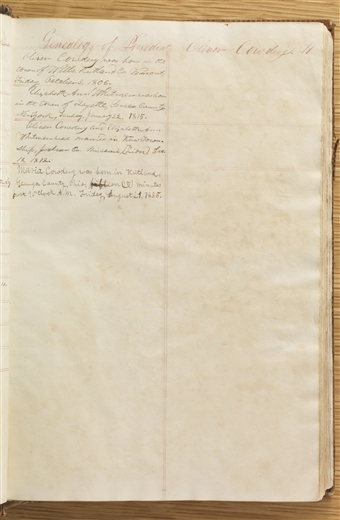 Genealogy of President Oliver Cowdery
Oliver Cowdery was born in the
town of Wells, Rutland Co. Vermont,
Friday October 3, 1806.
Elizabeth Ann Whitmer was born
in the town of Fayette, Seneca County
N. York, Sunday January 22, 1815.
Oliver Cowdery and Elizabeth Ann
Whitmer was married in Kaw Town-
ship, Jackson Co. Missouri,
18, 1832.
Maria Cowdery was born in Kirtland,
Geauga County, Ohio, fifteen (15) minutes
past o'clock A.M. Friday, August 1, 1835.